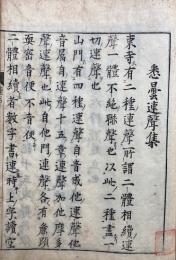 悉曇連聲集
東寺有二種連聲所謂二體相續連
聲一體不絶聯聲也以此二種盡一
切連聲也
山門有四種連聲自音或他連聲他
音属自連聲十五章連聲加他摩多
連聲也此自他門連聲各有意頭
耎密音便不音便
二體相續者數字書連時上字讀空